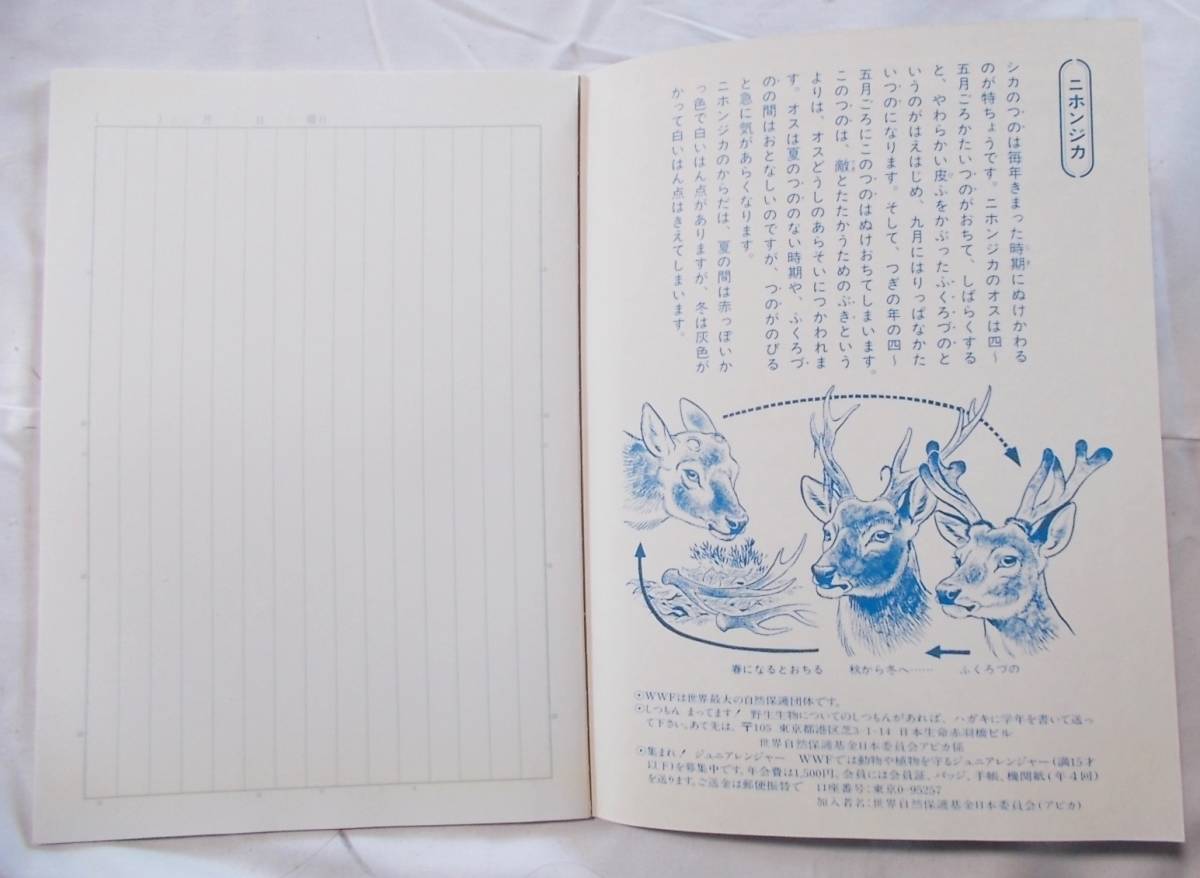 ニホンジカ
シカのつのは毎年きまった時期にぬけかわる
のが特ちょうです。ニホンジカのオスは四〜
五月ごろかたいつのがおちて、しばらくする
と、やわらかい皮ふをかぶったふくろづのと
いうのがはえはじめ、九月にはりっぱなかた
いつのになります。そして、つぎの年の四〜
五月ごろにこのつのはぬけおちてしまいます。
このつのは、敵とたたかうためのぶきという
よりは、オスどうしのあらそいにつかわれま
す。オスは夏のつののない時期や、ふくろづ
のの間はおとなしいのですが、つのがのびる
と急に気があらくなります。
ニホンジカのからだは、夏の間は赤っぽいか
っ色で白いはん点がありますが、冬は灰色が
かって白いはん点はきえてしまいます。
春になるとおちる 秋から冬へ…… ふくろづの
⊙WWFは世界最大の自然保護団体です。
⊙しつもん まってます! 野生生物についてのしつもんがあれば、ハガキに学年を書いて送っ
て下さい。あて先は、〒105 東京都港区芝3-1-14 日本生命赤羽橋ビル
世界自然保護基金日本委員会アピカ係
⊙集まれ! ジュニアレンジャー WWFでは動物や植物を守るジュニアレンジャー(満15才
以下)を募集中です。年会費は1,500円、会員には会員証、バッジ、手帳、機関紙(年4回)
を送ります。ご送金は郵便振替で 口座番号:東京0-95257
加入者名:世界自然保護基金日本委員会(アピカ)
月 日 曜日